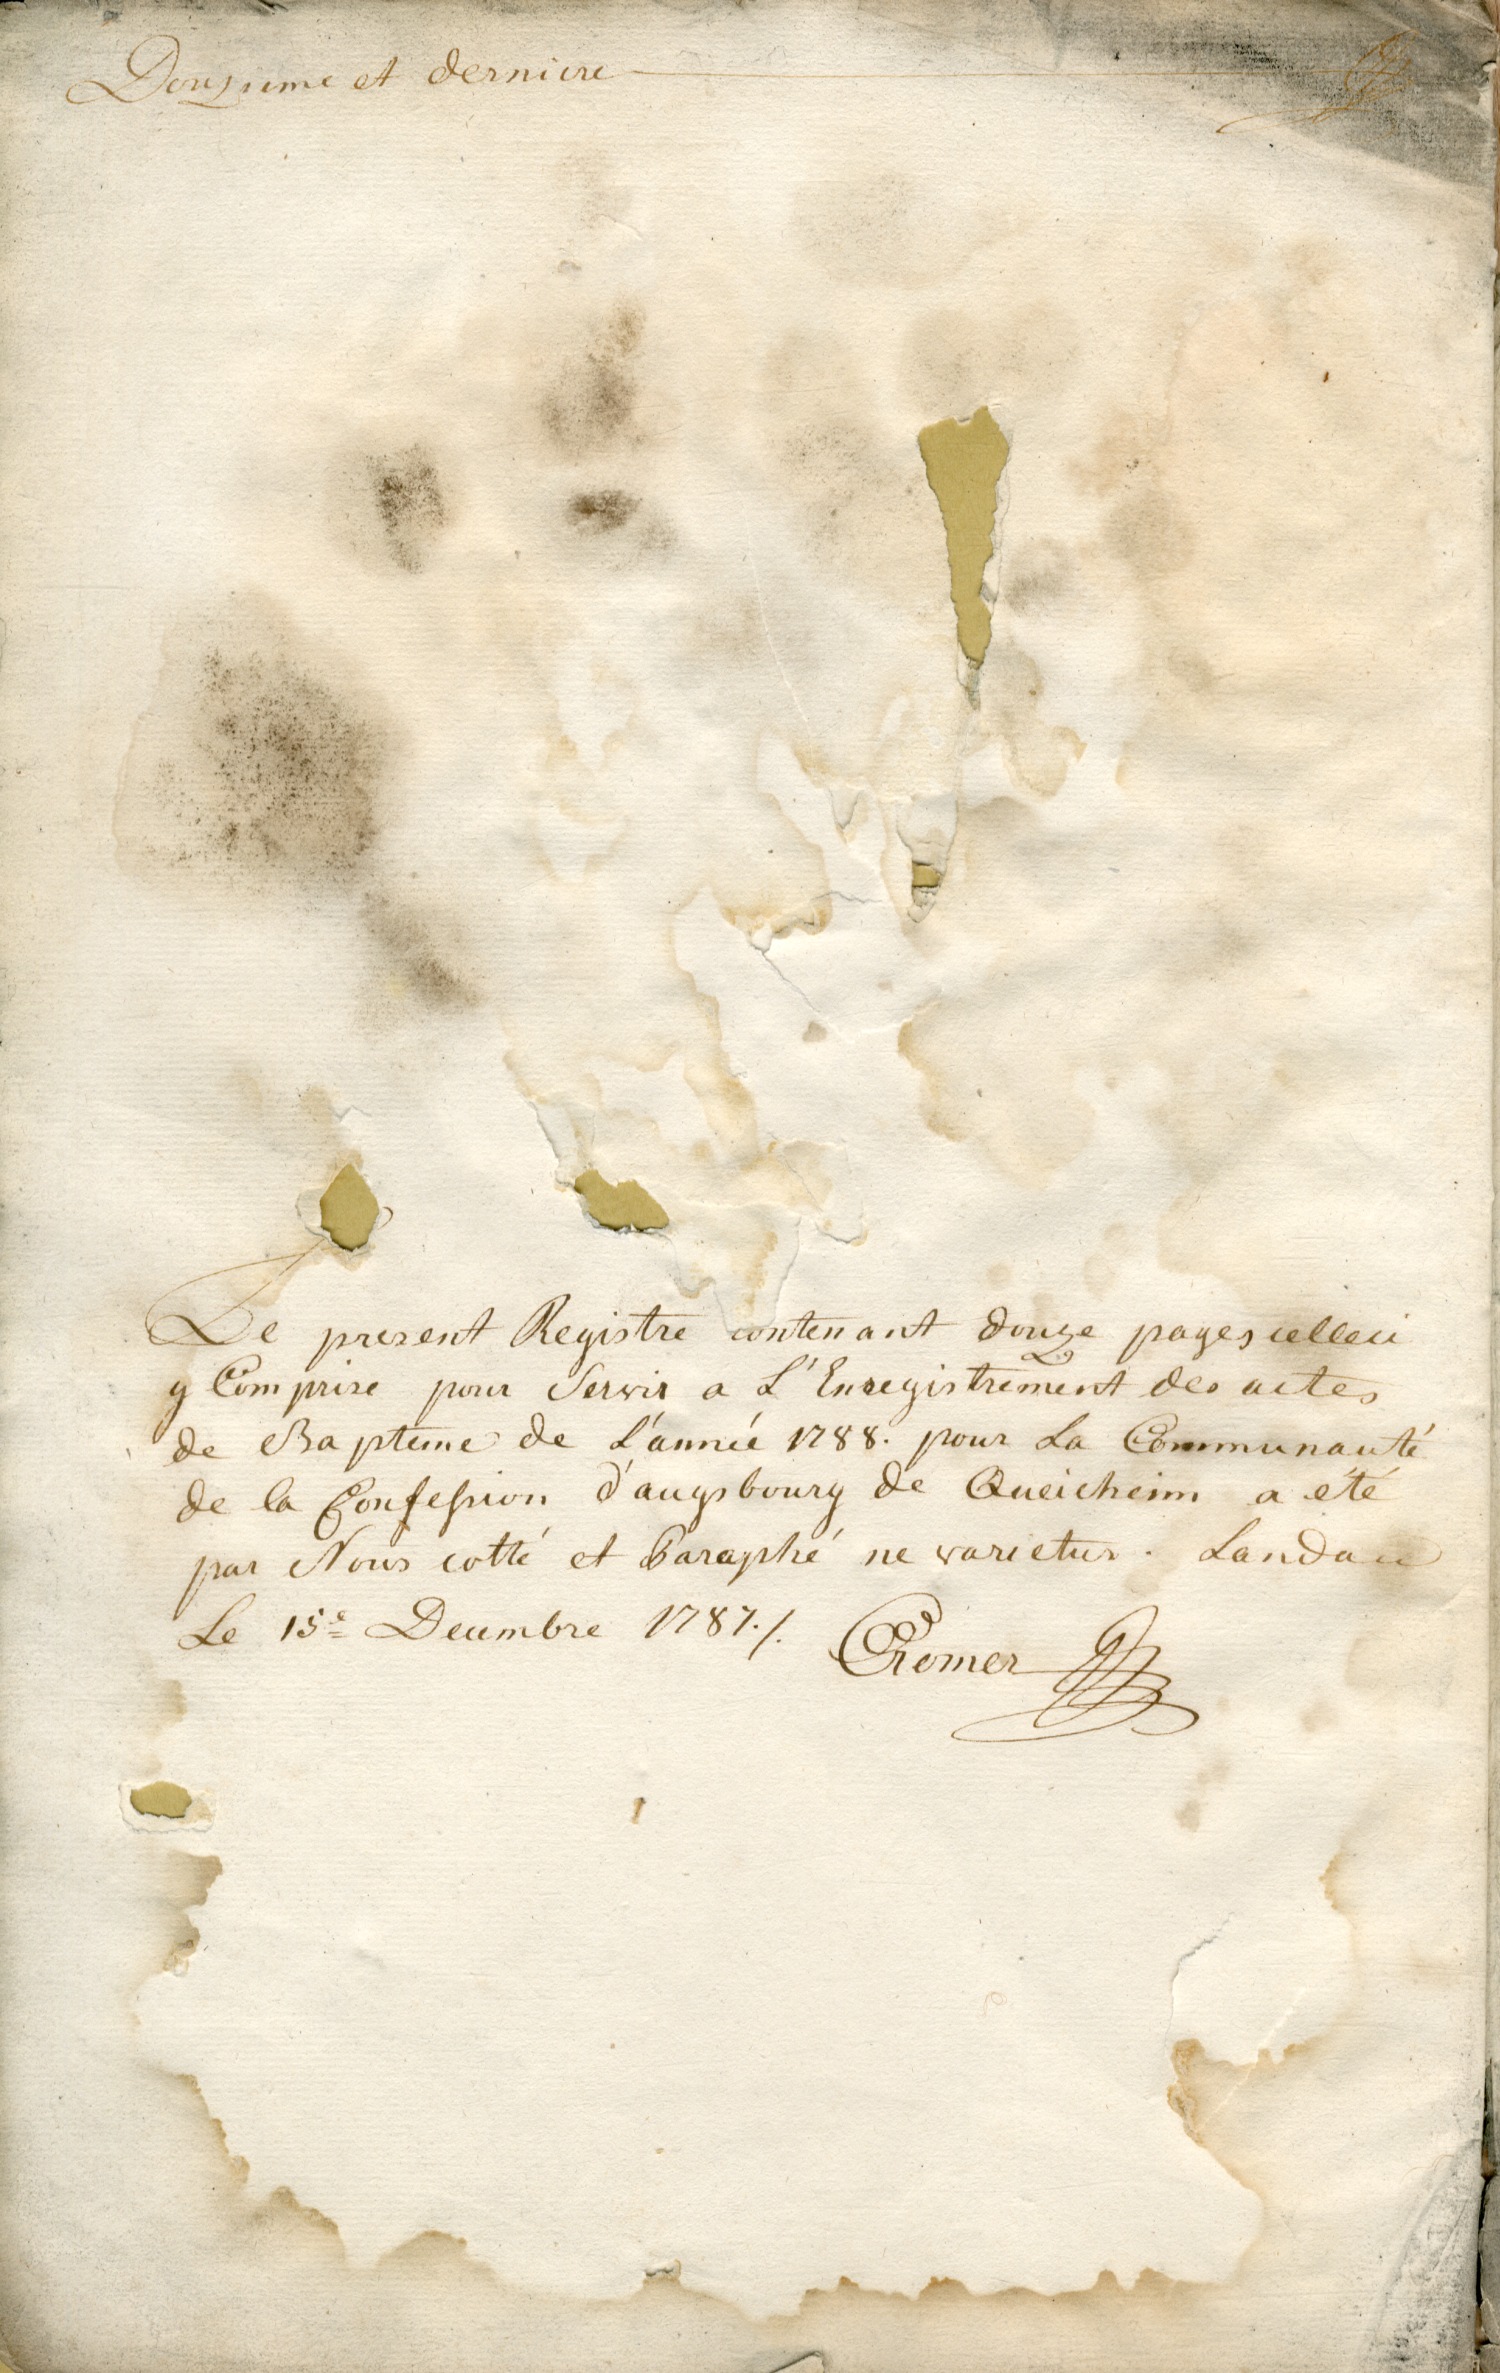 Douzieme et derniere
Le present Registre contenant douze pages celleci
y Comprise pour Servir a L'Enregistrement des actes
de Bapteme de L'année 1788. pour La Communauté
de la Confession d'augsbourg de Queicheim a été
par Nous cotté et Paraphé ne varietur. Landau
Le 15e Decembre 1787./.
Cromer